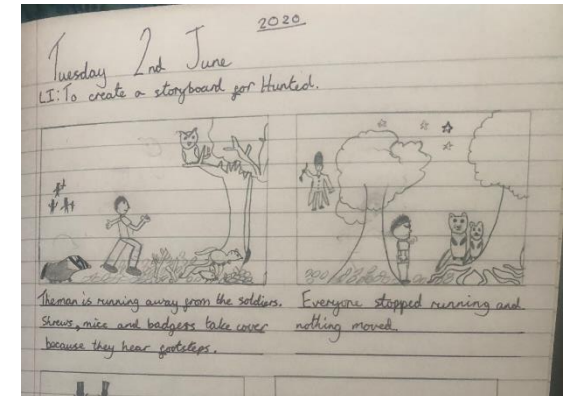 2020
Tuesday 2nd June
LI: To create a storyboard for Hunted.
The man is running away from the soldiers.
Shrews, mice and badgers take cover
because they hear footsteps.
Everyone stopped running and
nothing moved.